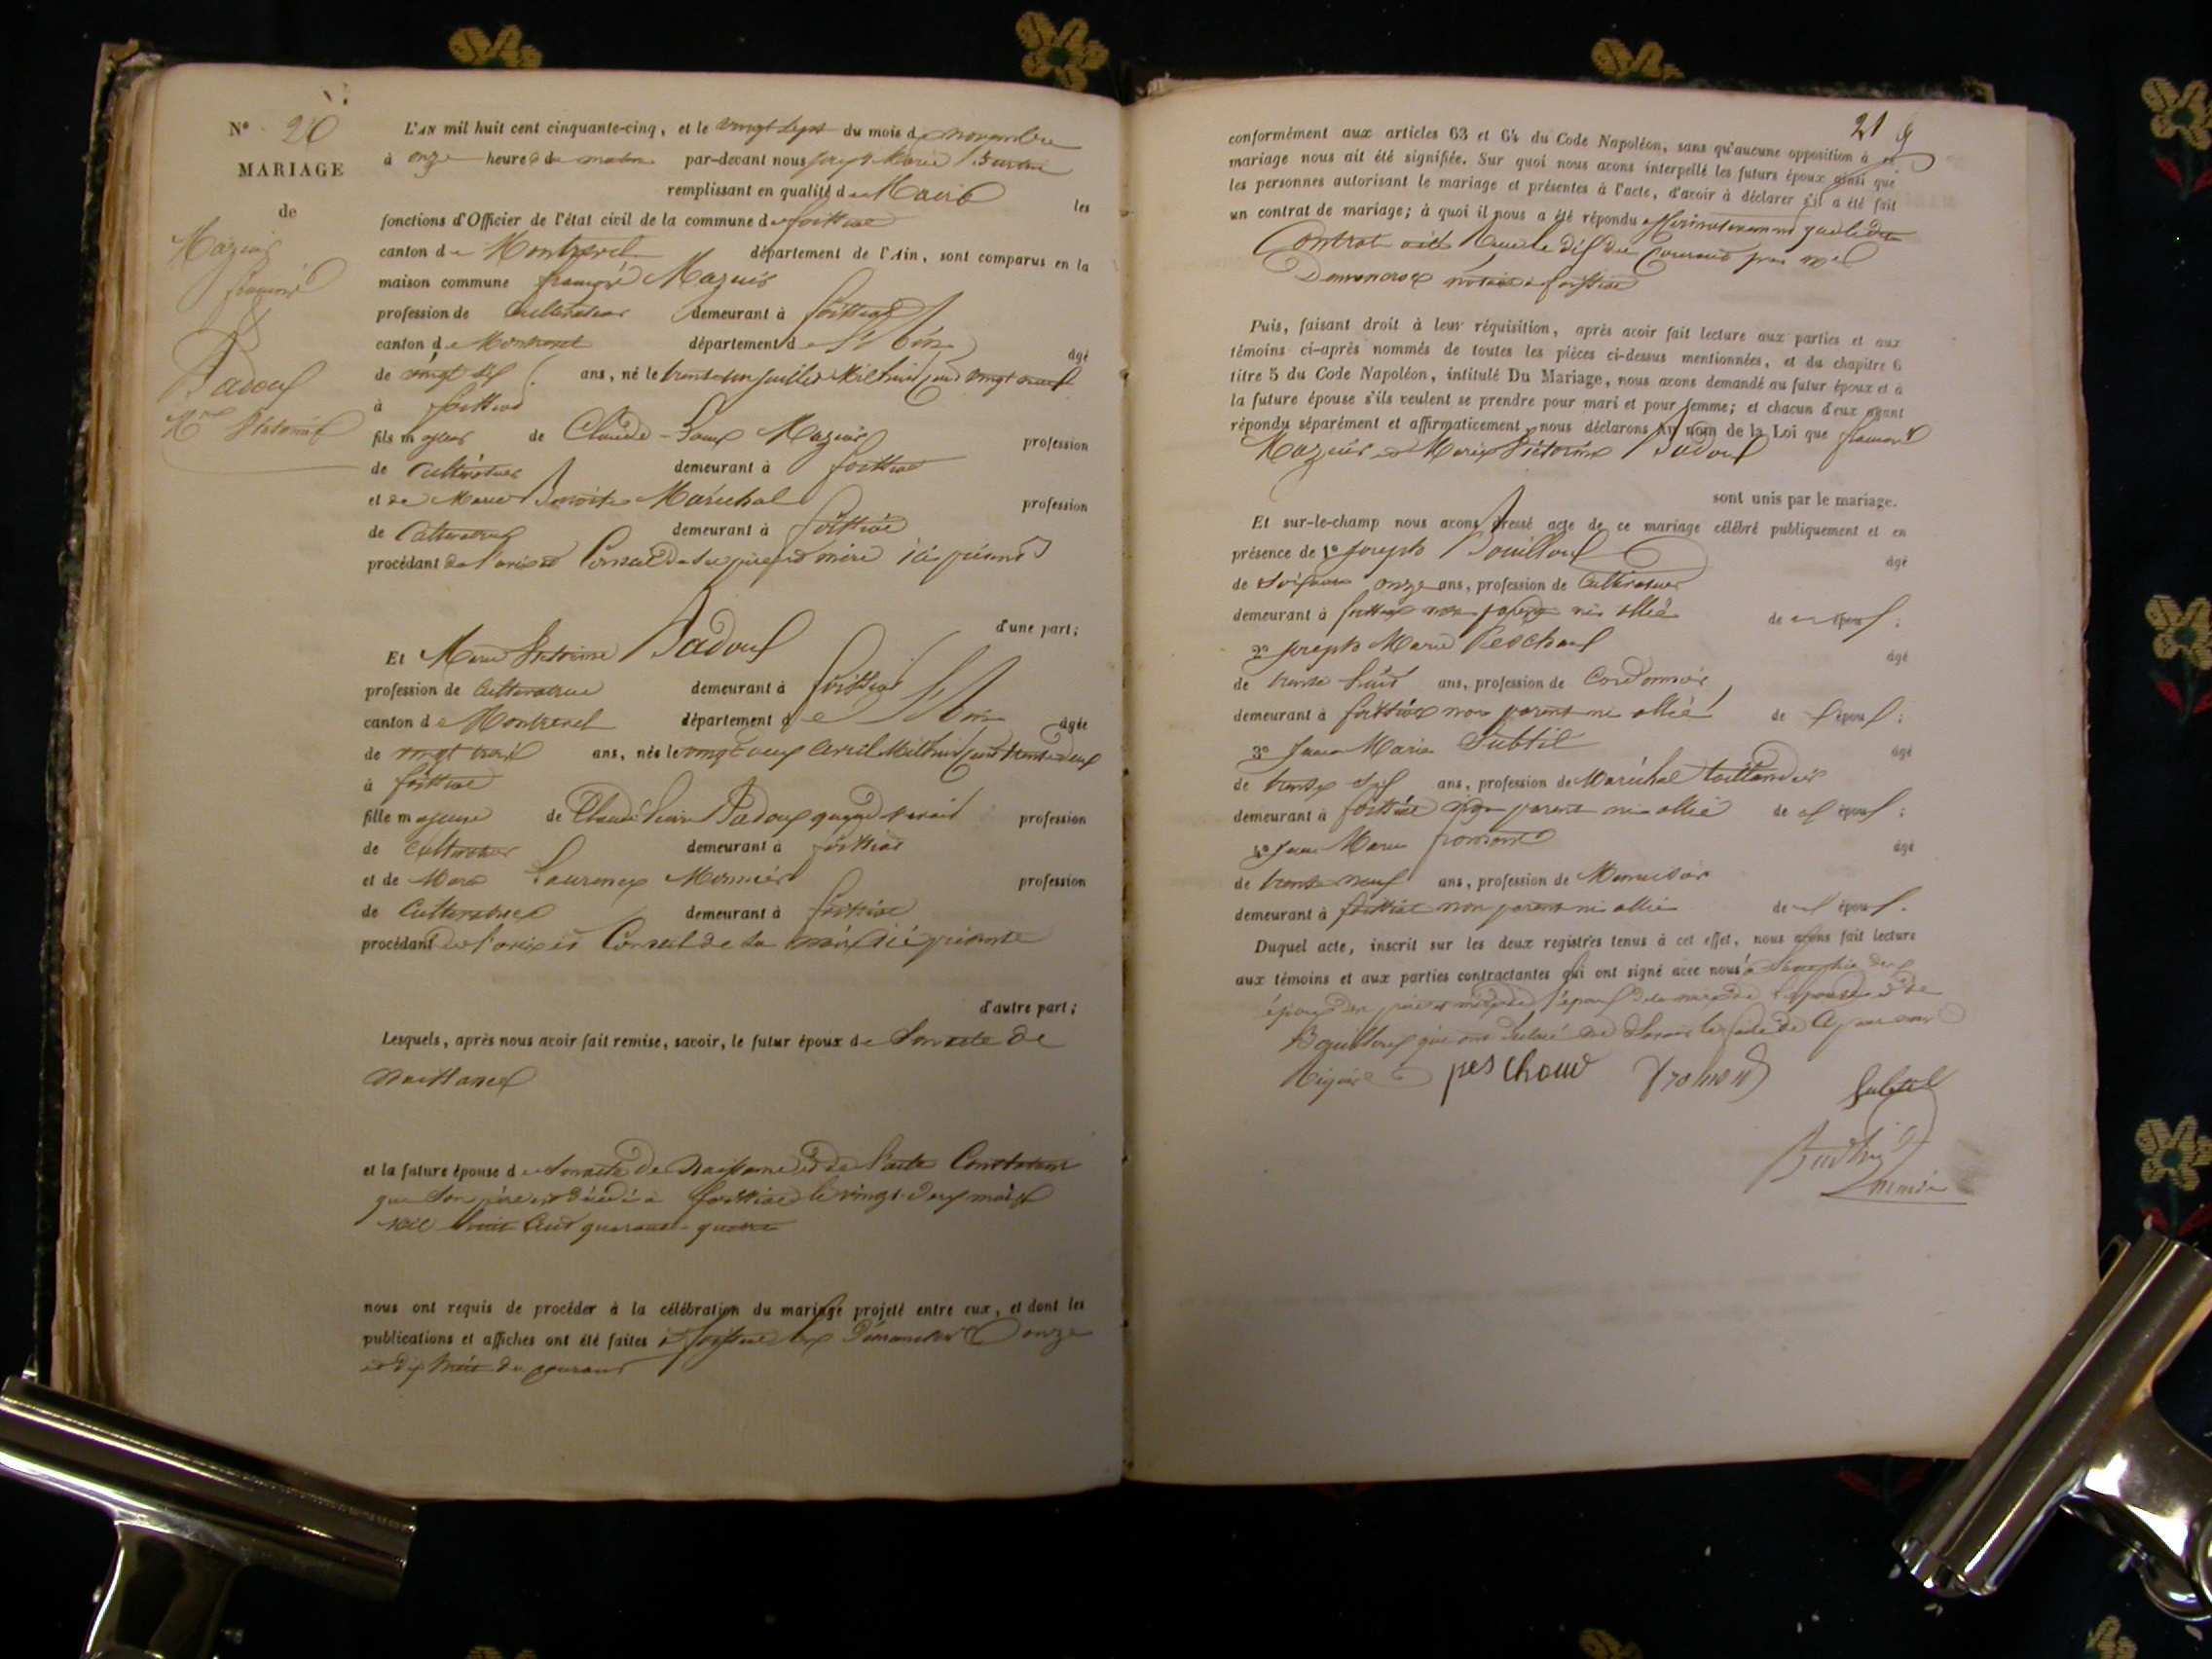 N° 20
MARIAGE
de
Mazuir
françois
&
Badoux
Mie Victorine
L'AN mil huit cent cinquante-cinq, et le vingt sept du mois de novembre
à onze heures du matin par-devant nous Joseph Marie
remplissant en qualité de Maire les
fonctions d'Officier de l'état civil de la commune de foissiat
canton de Montrevel département de l'Ain, sont comparus en la
maison commune françois Mazuir
profession de Cultivateur demeurant à foissiat
canton de Montrevel département de l'Ain âgé
de vingt six ans, né le trente un juillet Mil huit cent vingt neuf
à foissiat
fils majeur de Claude Mazuir profession
de Cultivateur demeurant à foissiat
et de Marie Benoite Maréchal profession
de Cultivatrice demeurant à foissiat
procédant de l'avis et Conseil de ses père et mère ici présents
d'une part;
Et Marie Victorine Badoux
profession de Cultivatrice demeurant à foissiat
canton de Montrevel département de l'Ain âgée
de vingt trois ans, née le vingt deux avril Mil huit cent trente deux
à foissiat
fille majeure de Claude Badoux quand vivait profession
de Cultivateur demeurant à foissiat
et de Marie Laurence Monnier profession
de Cultivatrice demeurant à foissiat
procédant de l'avis et Conseil de sa mère ici présente
d'autre part;
Lesquels, après nous avoir fait remise, savoir, le futur époux de son acte de
Naissance
et la future épouse de son acte de Naissance et de l'acte Constatant
que son père est décédé à foissiat le vingt deux
mil huit Cent quarante quatre
nous ont requis de procéder à la célébration du mariage projeté entre eux, et dont les
publications et affiches ont été faites à foissiat les Dimanches onze
et dix huit du courant
21
conformément aux articles 63 et 64 du Code Napoléon, sans qu'aucune opposition à ce
mariage nous ait été signifiée. Sur quoi nous avons interpellé les futurs époux ainsi que
les personnes autorisant le mariage et présentes à l'acte, d'avoir à déclarer s'il a été fait
un contrat de mariage; à quoi il nous a été répondu affirmativement que le dit
Contrat a été reçu le dix du Courant par Me
notaire à foissiat
Puis, faisant droit à leur réquisition, après avoir fait lecture aux parties et aux
témoins ci-après nommés de toutes les pièces ci-dessus mentionnées, et du chapitre 6
titre 5 du Code Napoléon, intitulé Du Mariage, nous avons demandé au futur époux et à
la future épouse s'ils veulent se prendre pour mari et pour femme; et chacun d'eux ayant
répondu séparément et affirmativement, nous déclarons au nom de la Loi que françois
Mazuir et Marie Victorine Badoux
sont unis par le mariage.
Et sur-le-champ nous avons dressé acte de ce mariage célébré publiquement et en
présence de 1° Joseph Bouilloux âgé
de soixante onze ans, profession de Cultivateur
demeurant à foissiat non parent ni allié de l'époux;
2° Joseph Marie Peschoux âgé
de trente huit ans, profession de Cordonnier
demeurant à foissiat non parent ni allié de l'époux;
3° Jean Marie Subtil âgé
de trente six ans, profession de Maréchal taillandier
demeurant à foissiat non parent ni allié de l'époux;
4° Jean Marie âgé
de trente neuf ans, profession de Menuisier
demeurant à foissiat non parent ni allié de l'époux.
Duquel acte, inscrit sur les deux registres tenus à cet effet, nous avons fait lecture
aux témoins et aux parties contractantes qui ont signé avec nous à l'exception des
époux des père et mère de l'époux de la mère de l'épouse et de
Bouilloux qui ont déclaré ne savoir le faire de ce
requis
peschoux
Subtil
maire